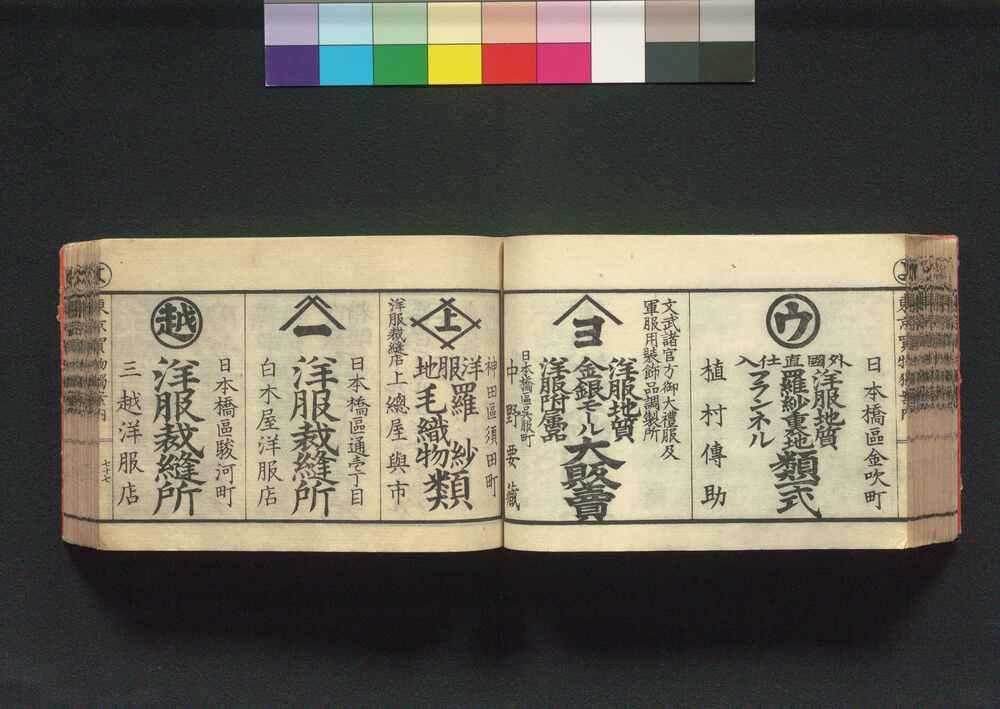 日本橋區金吹町
ウ
外國直仕入
洋服地質
羅紗重地
フランネル
類一式
植村傳助
文武諸官方御大禮服及
軍服用裝飾品調製所
ヨ
洋服地質
金銀モール
洋服附属品
大販賣
日本橋區呉服町
中野要藏
神田區須田町
上
洋服地
羅紗
毛織物
類
洋服裁縫店
上總屋與市
日本橋區通壱丁目
一
洋服裁縫所
白木屋洋服店
日本橋區駿河町
越
洋服裁縫所
三越洋服店
七十七